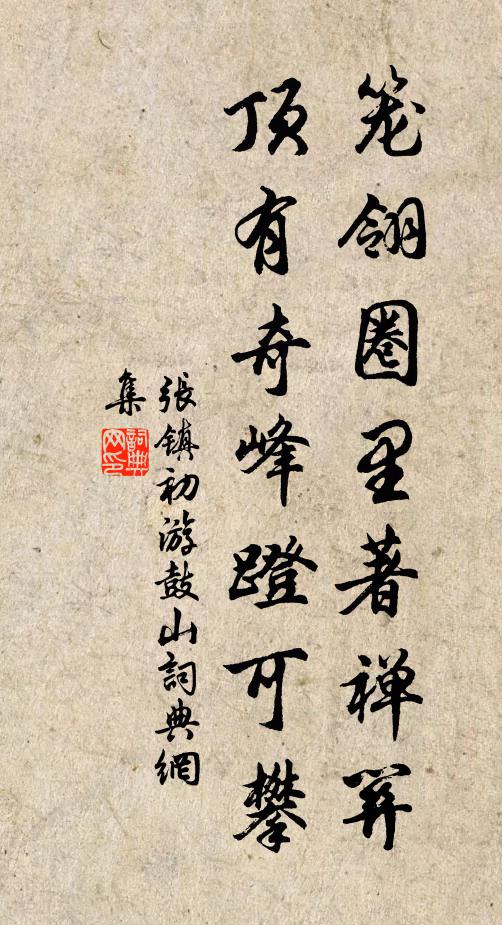 笼翎圈里著禅关
頂有奇峰蹬可攀
張鎮初游鼓山詞典網
集
詞典
网印